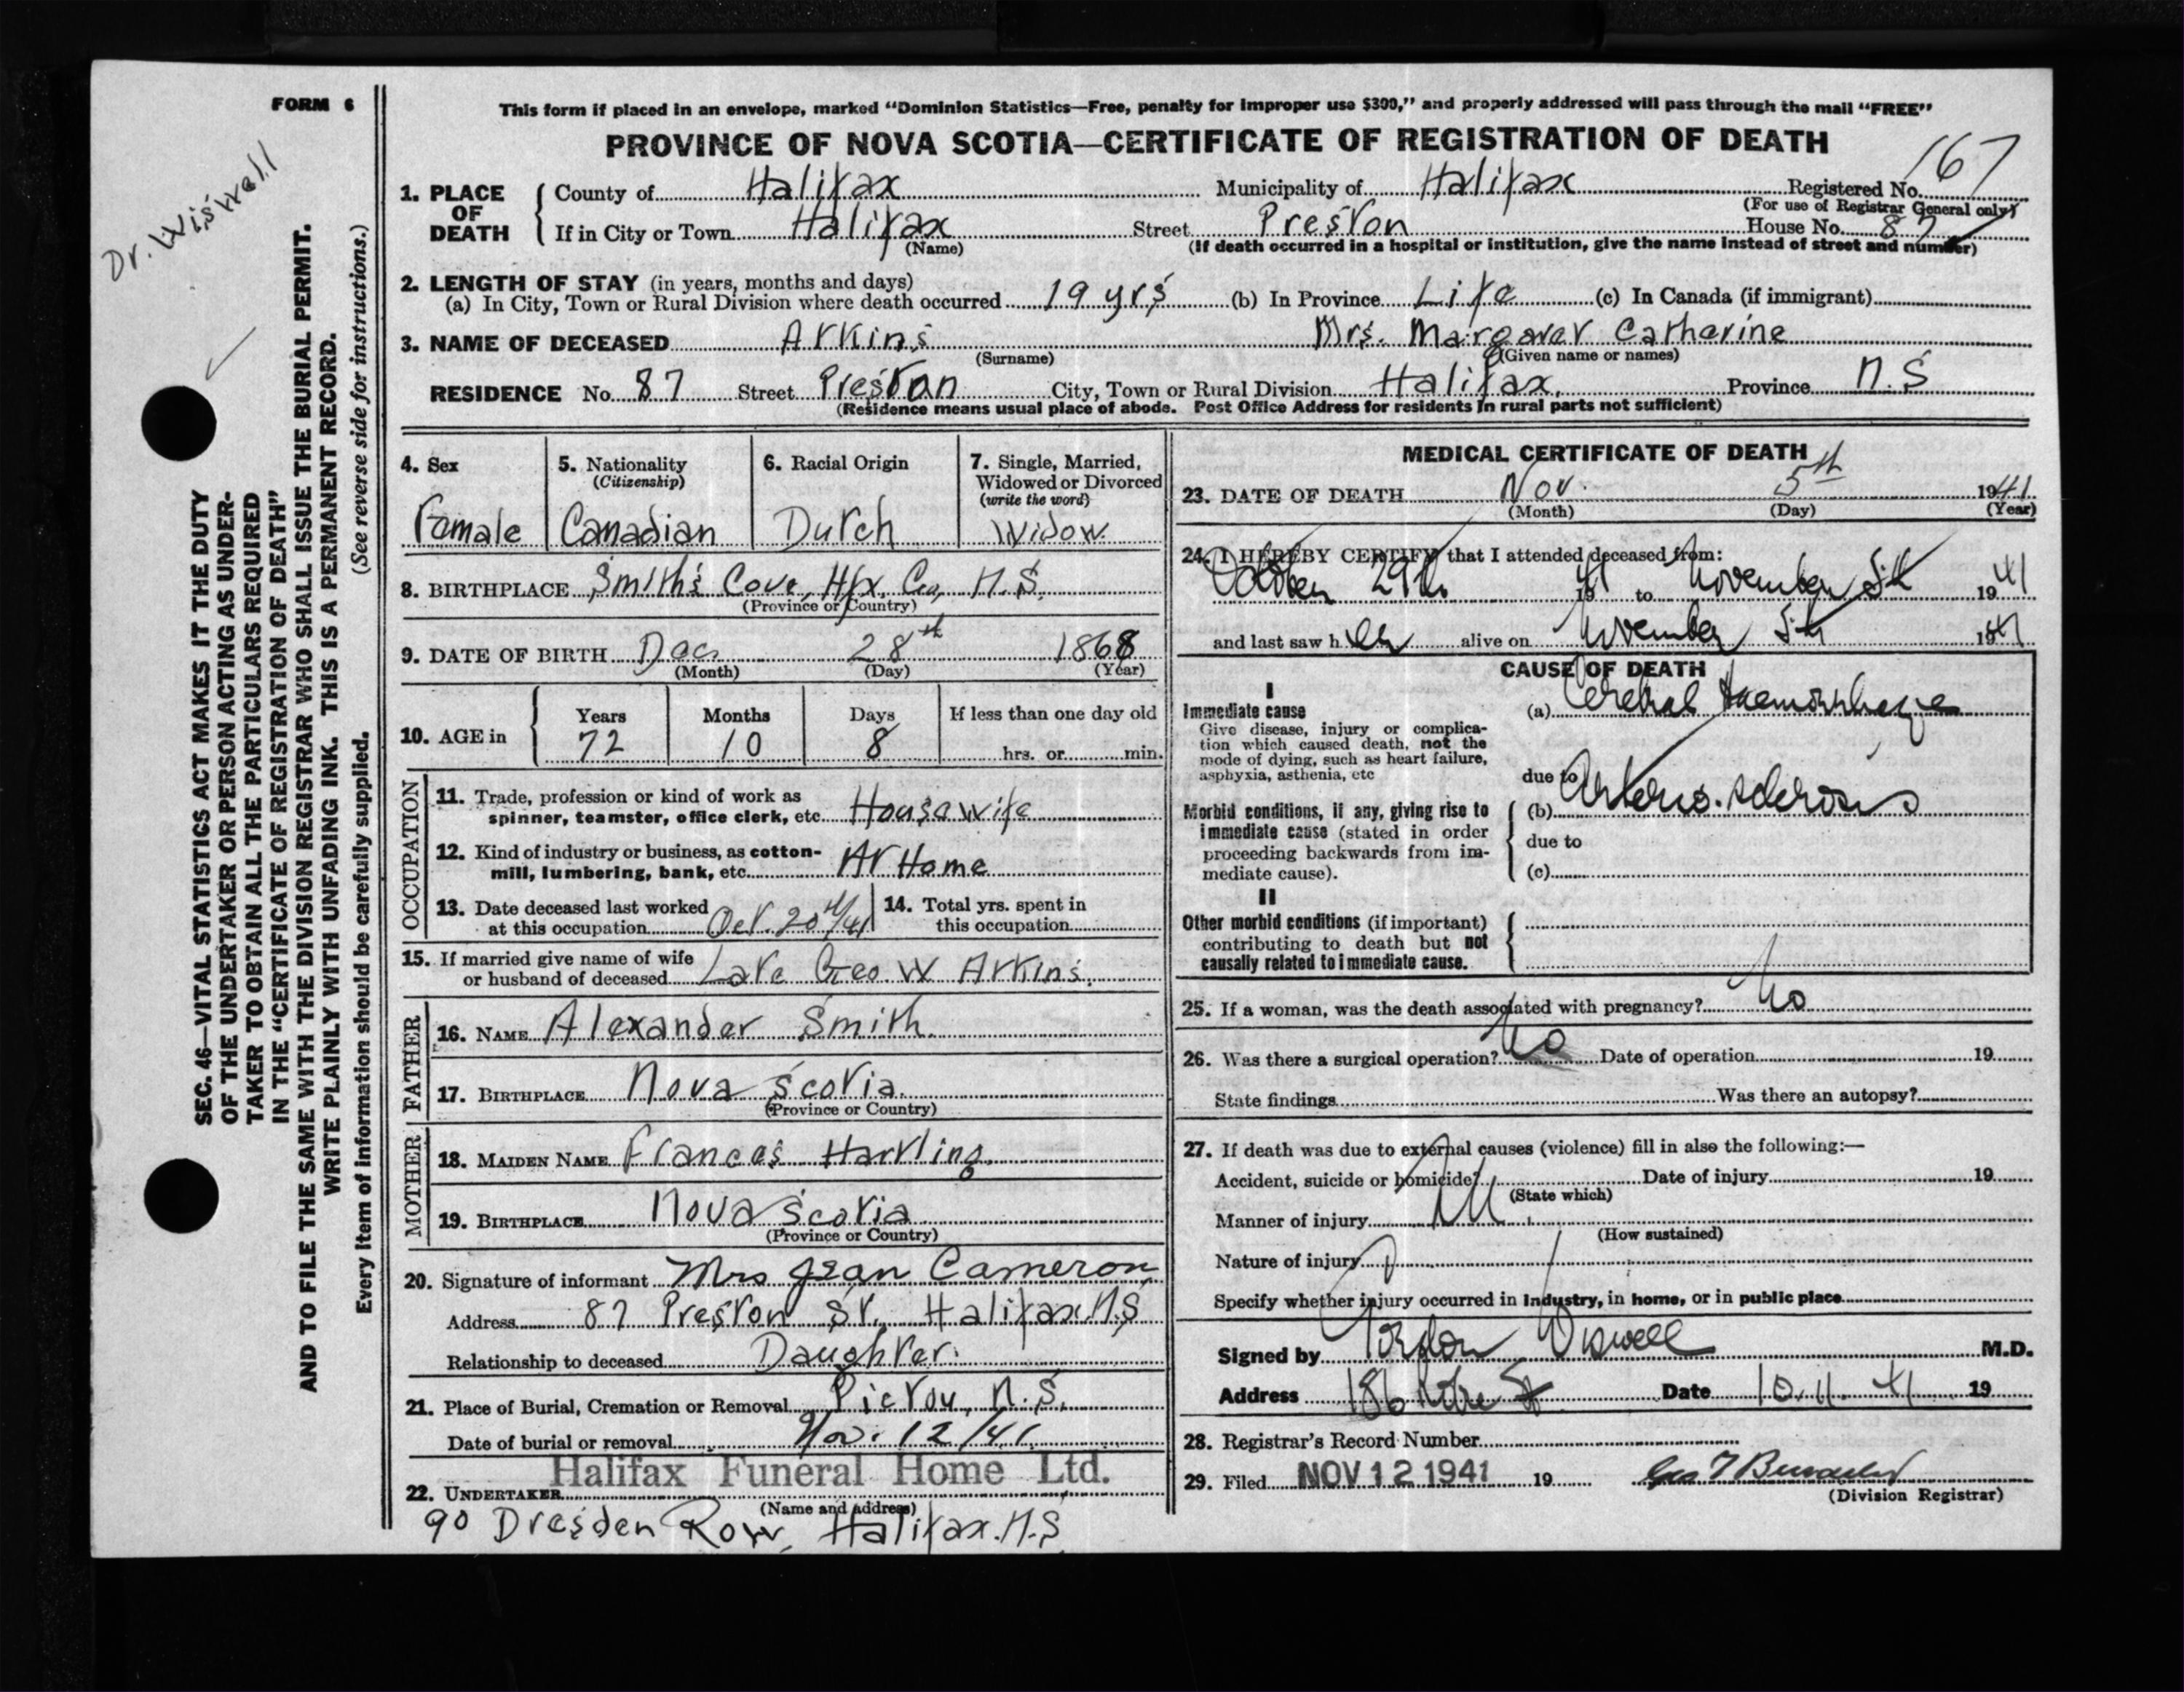 FORM 6
Dr. Wiswell
SEC. 46—VITAL STATISTICS ACT MAKES IT THE DUTY
OF THE UNDERTAKER OR PERSON ACTING AS UNDER-
TAKER TO OBTAIN ALL THE PARTICULARS REQUIRED
IN THE "CERTIFICATE OF REGISTRATION OF DEATH"
AND TO FILE THE SAME WITH THE DIVISION REGISTRAR WHO SHALL ISSUE THE BURIAL PERMIT.
WRITE PLAINLY WITH UNFADING INK. THIS IS A PERMANENT RECORD.
Every item of information should be carefully supplied. (See reverse side for instructions.)
This form if placed in an envelope, marked "Dominion Statistics—Free, penalty for improper use $300," and properly addressed will pass through the mail "FREE"
PROVINCE OF NOVA SCOTIA—CERTIFICATE OF REGISTRATION OF DEATH
167
1. PLACE OF DEATH County of Halifax Municipality of Halifax Registered No.
(For use of Registrar General only)
If in City or Town Halifax Street Preston House No. 87
(Name) (If death occurred in a hospital or institution, give the name instead of street and number)
2. LENGTH OF STAY (in years, months and days)
(a) In City, Town or Rural Division where death occurred 19 yrs (b) In Province Life (c) In Canada (if immigrant)
3. NAME OF DECEASED Atkins Mrs. Margaret Catherine
(Surname) (Given name or names)
RESIDENCE No. 87 Street Preston City, Town or Rural Division Halifax, Province N.S
(Residence means usual place of abode. Post Office Address for residents in rural parts not sufficient)
4. Sex 5. Nationality (Citizenship) 6. Racial Origin 7. Single, Married, Widowed or Divorced (write the word)
Female Canadian Dutch Widow
8. BIRTHPLACE Smith's Cove, Hfx. Co, N.S.
(Province or Country)
9. DATE OF BIRTH Dec 28th 1868
(Month) (Day) (Year)
10. AGE in Years Months Days If less than one day old
72 10 8 hrs. or min.
OCCUPATION
11. Trade, profession or kind of work as
spinner, teamster, office clerk, etc. House wife
12. Kind of industry or business, as cotton-
mill, lumbering, bank, etc. At Home
13. Date deceased last worked
at this occupation Oct. 20th/41
14. Total yrs. spent in
this occupation
15. If married give name of wife
or husband of deceased Late Geo W Atkins.
FATHER
16. NAME Alexander Smith.
17. BIRTHPLACE Nova Scotia.
(Province or Country)
MOTHER
18. MAIDEN NAME Frances Hartling.
19. BIRTHPLACE Nova Scotia
(Province or Country)
20. Signature of informant Mrs Jean Cameron
Address 87 Preston St., Halifax. N.S
Relationship to deceased Daughter.
21. Place of Burial, Cremation or Removal Pictou, N.S.
Date of burial or removal Nov. 12/41
22. UNDERTAKER Halifax Funeral Home Ltd.
(Name and address)
90 Dresden Row, Halifax. N.S
MEDICAL CERTIFICATE OF DEATH
23. DATE OF DEATH Nov. 5th 1941
(Month) (Day) (Year)
24. I HEREBY CERTIFY that I attended deceased from:
October 29th 1941 to November 5th 1941
and last saw her alive on November 5th 1941
CAUSE OF DEATH
I
Immediate cause (a) Cerebral Haemorrhage
Give disease, injury or complica-
tion which caused death, not the
mode of dying, such as heart failure,
asphyxia, asthenia, etc
due to
Morbid conditions, if any, giving rise to
immediate cause (stated in order
proceeding backwards from im-
mediate cause).
(b) Arterio-sclerosis
due to
(c)
II
Other morbid conditions (if important)
contributing to death but not
causally related to immediate cause.
25. If a woman, was the death associated with pregnancy? No
26. Was there a surgical operation? No Date of operation 19
State findings Was there an autopsy?
27. If death was due to external causes (violence) fill in also the following:—
Accident, suicide or homicide? Date of injury 19
(State which)
Manner of injury
(How sustained)
Nature of injury
Specify whether injury occurred in industry, in home, or in public place
Signed by Gordon Wiswell M.D.
Address 186 St Date 10.11.41 19
28. Registrar's Record Number
29. Filed NOV 12 1941 19
(Division Registrar)